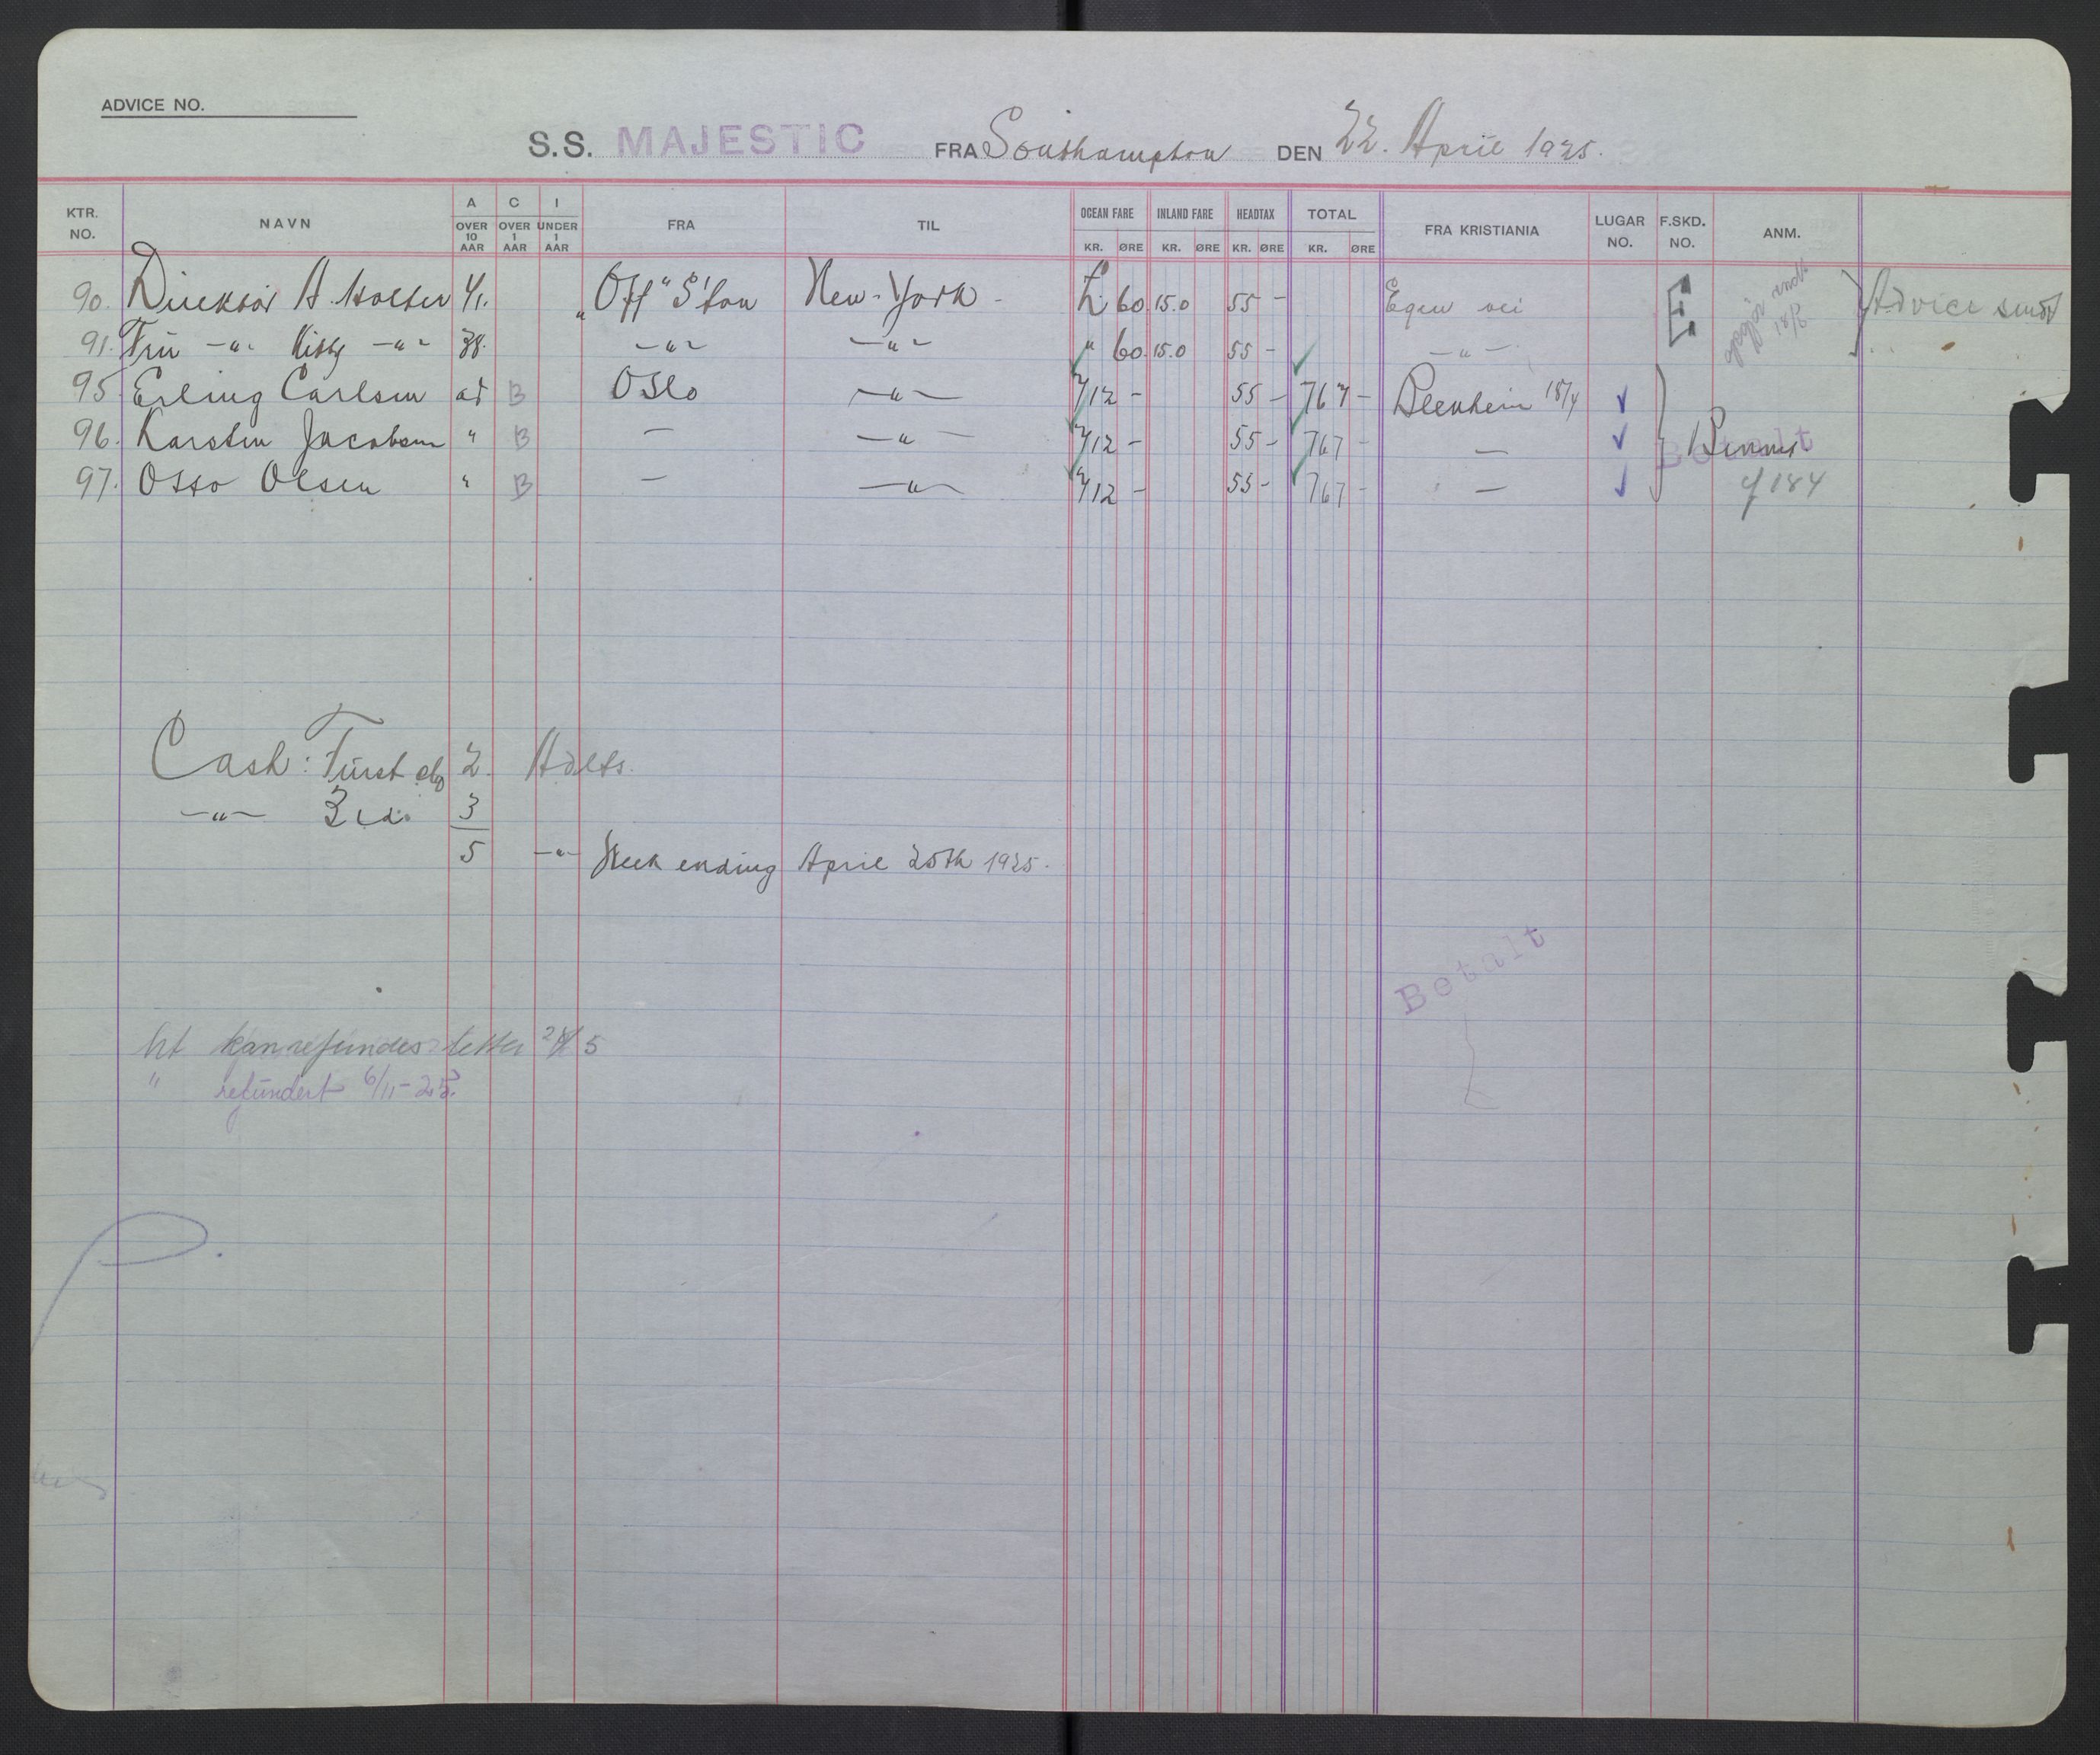 ADVICE NO.
S.S. MAJESTIC FRA Southampton DEN 22. April 1925.
KTR. NO. NAVN A OVER 10 AAR C OVER 1 AAR I UNDER 1 AAR FRA TIL OCEAN FARE KR. ØRE INLAND FARE KR. ØRE HEADTAX KR. ØRE TOTAL KR. ØRE FRA KRISTIANIA LUGAR NO. F.SKD. NO. ANM.
90. Direktör A. Holter 41. "Off" S'ton New-York - £ 60 15.0 55 - Egen vei E 18/3 Advice sendt
91. Fru -"- -"- 38. -"- -"- " 60. 15.0 55 - -"-
95 Erling Carlsen ad B Oslo -"- 712 - 55 - 767 - Blenheim 18/4 ✓
96. Karsten Jacobsen " B - -"- 712 - 55 - 767 - - ✓ Betalt
97. Otto Olsen " B - -"- 712 - 55 - 767 - - ✓ 184
Cash: First 2. Adlts.
-"- 3 cl. 3
5 -"- Week ending April 25th 1925.
Betalt
ht kan refunderes letter 5
" refundert 6/11-25.